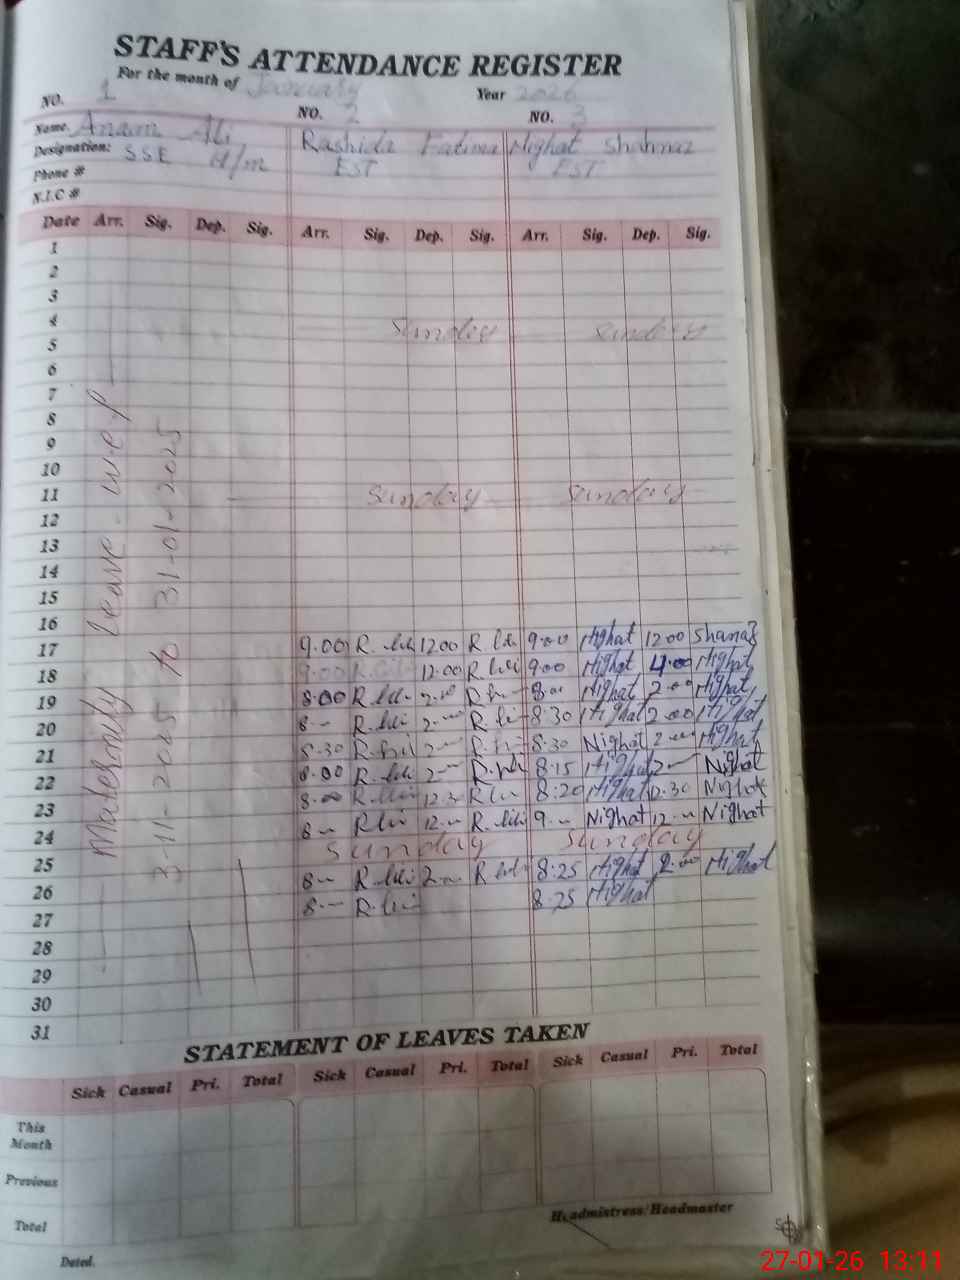 STAFF'S ATTENDANCE REGISTER
For the month of January Year 2026
NO. 1 NO. 2 NO. 3
Name. Anam Ali Rashida Fatima Nighat Shahnaz
Designation: SSE H/m EST EST
Phone #
N.I.C #
Date Arr. Sig. Dep. Sig. Arr. Sig. Dep. Sig. Arr. Sig. Dep. Sig.
1
2
3
4 Sunday Sunday
5
6
7
8
9
10
11 Sunday Sunday
12
13
14
15
16
17 9.00 R. 12.00 R. 9.00 Nighat 12.00 Shanaz
18 9.00 R. 12.00 R. 9.00 Nighat 4.00 Nighat
19 8.00 R. 2.00 R. 8.00 Nighat 2.00 Nighat
20 8- R. 2- R. 8.30 Nighat 2.00 Nighat
21 8.30 R. 2- R. 8.30 Nighat 2- Nighat
22 8.00 R. 2- R. 8.15 Nighat 2- Nighat
23 8.00 R. 12.30 R. 8:20 Nighat 12.30 Nighat
24 8- R. 12- R. 9- Nighat 12- Nighat
25 Sunday Sunday
26 8- R. 2- R. 8.25 Nighat 2.00 Nighat
27 8- R. 8.25 Nighat
28
29
30
31
Maternity Leave w.e.f
3-11-2025 to 31-01-2025
STATEMENT OF LEAVES TAKEN
Sick Casual Pri. Total Sick Casual Pri. Total Sick Casual Pri. Total
This Month
Previous
Total
Headmistress/Headmaster
Dated.
27-01-26 13:11